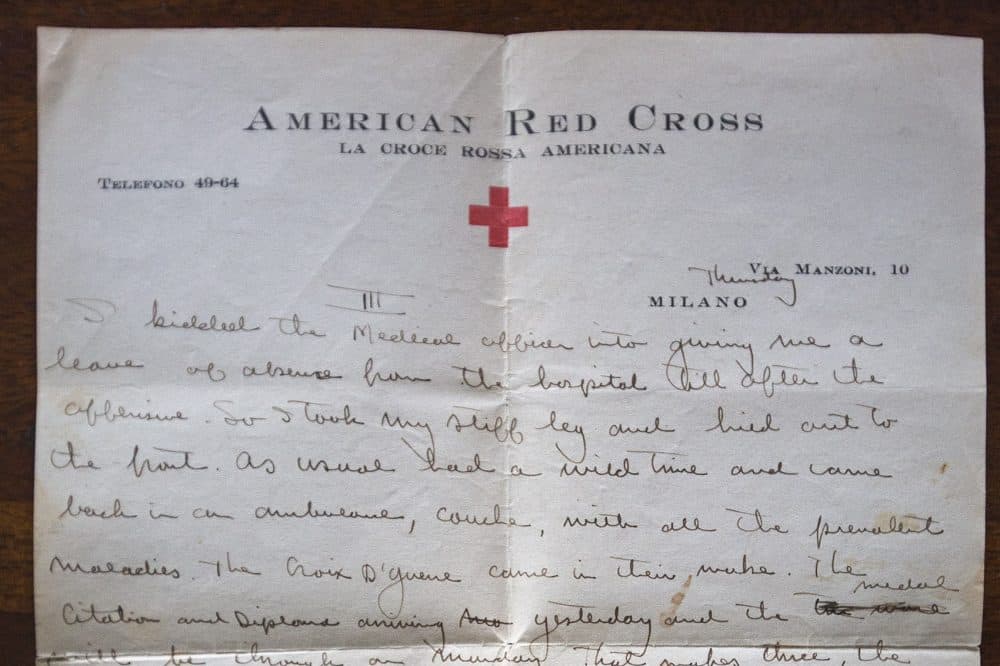 AMERICAN RED CROSS
LA CROCE ROSSA AMERICANA
TELEFONO 49-64
VIA MANZONI, 10
Thursday
MILANO
III
I kidded the Medical officer into giving me a
leave of absence from the hospital till after the
offensive. So I took my stiff leg and hied out to
the front. As usual had a wild time and came
back in an ambulance, couche, with all the prevalent
maladies. The Croix D'guerre came in their wake. The
medal
Citation and Diploma arriving yesterday and the
will be through on Monday. That makes three, the